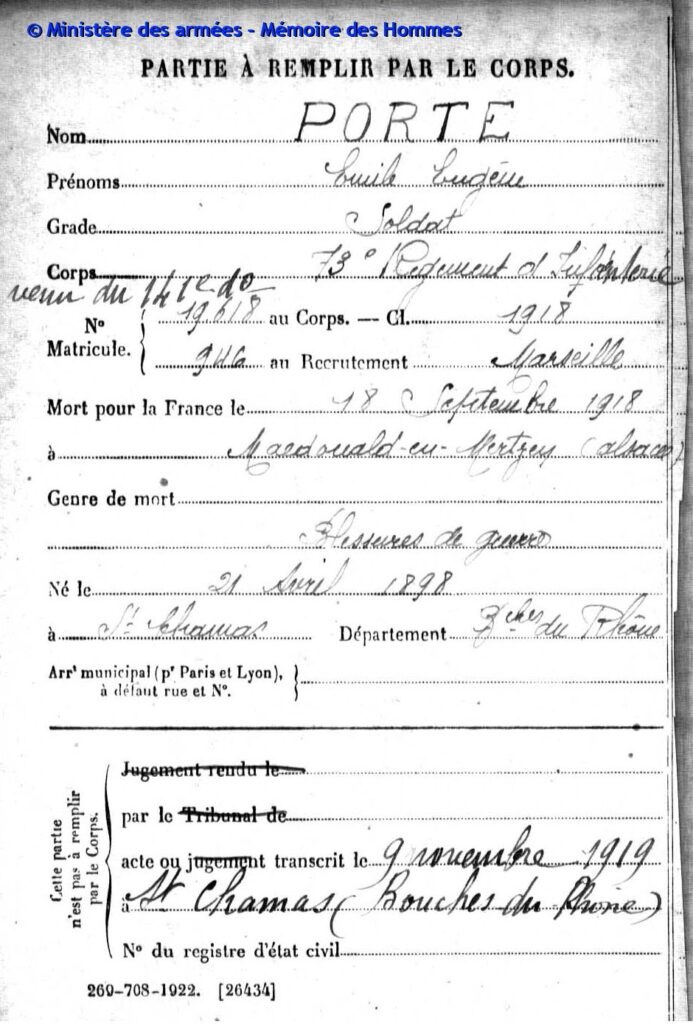 © Ministère des armées - Mémoire des Hommes
PARTIE À REMPLIR PAR LE CORPS.
Nom PORTE
Prénoms Emile Eugène
Grade Soldat
Corps 73e Régiment d'Infanterie
venu du 141e do
No Matricule. 19618 au Corps. — Cl. 1918
946 au Recrutement Marseille
Mort pour la France le 18 Septembre 1918
à Macdonald-en-Mertzen (alsace)
Genre de mort
Blessures de guerre
Né le 21 Avril 1898
à St Chamas Département Bches du Rhône
Arrt municipal (pr Paris et Lyon),
à défaut rue et No.
Cette partie
n'est pas à remplir
par le Corps.
Jugement rendu le
par le Tribunal de
acte ou jugement transcrit le 9 novembre 1919
à St Chamas (Bouches du Rhône)
No du registre d'état civil
269-708-1922. [26434]